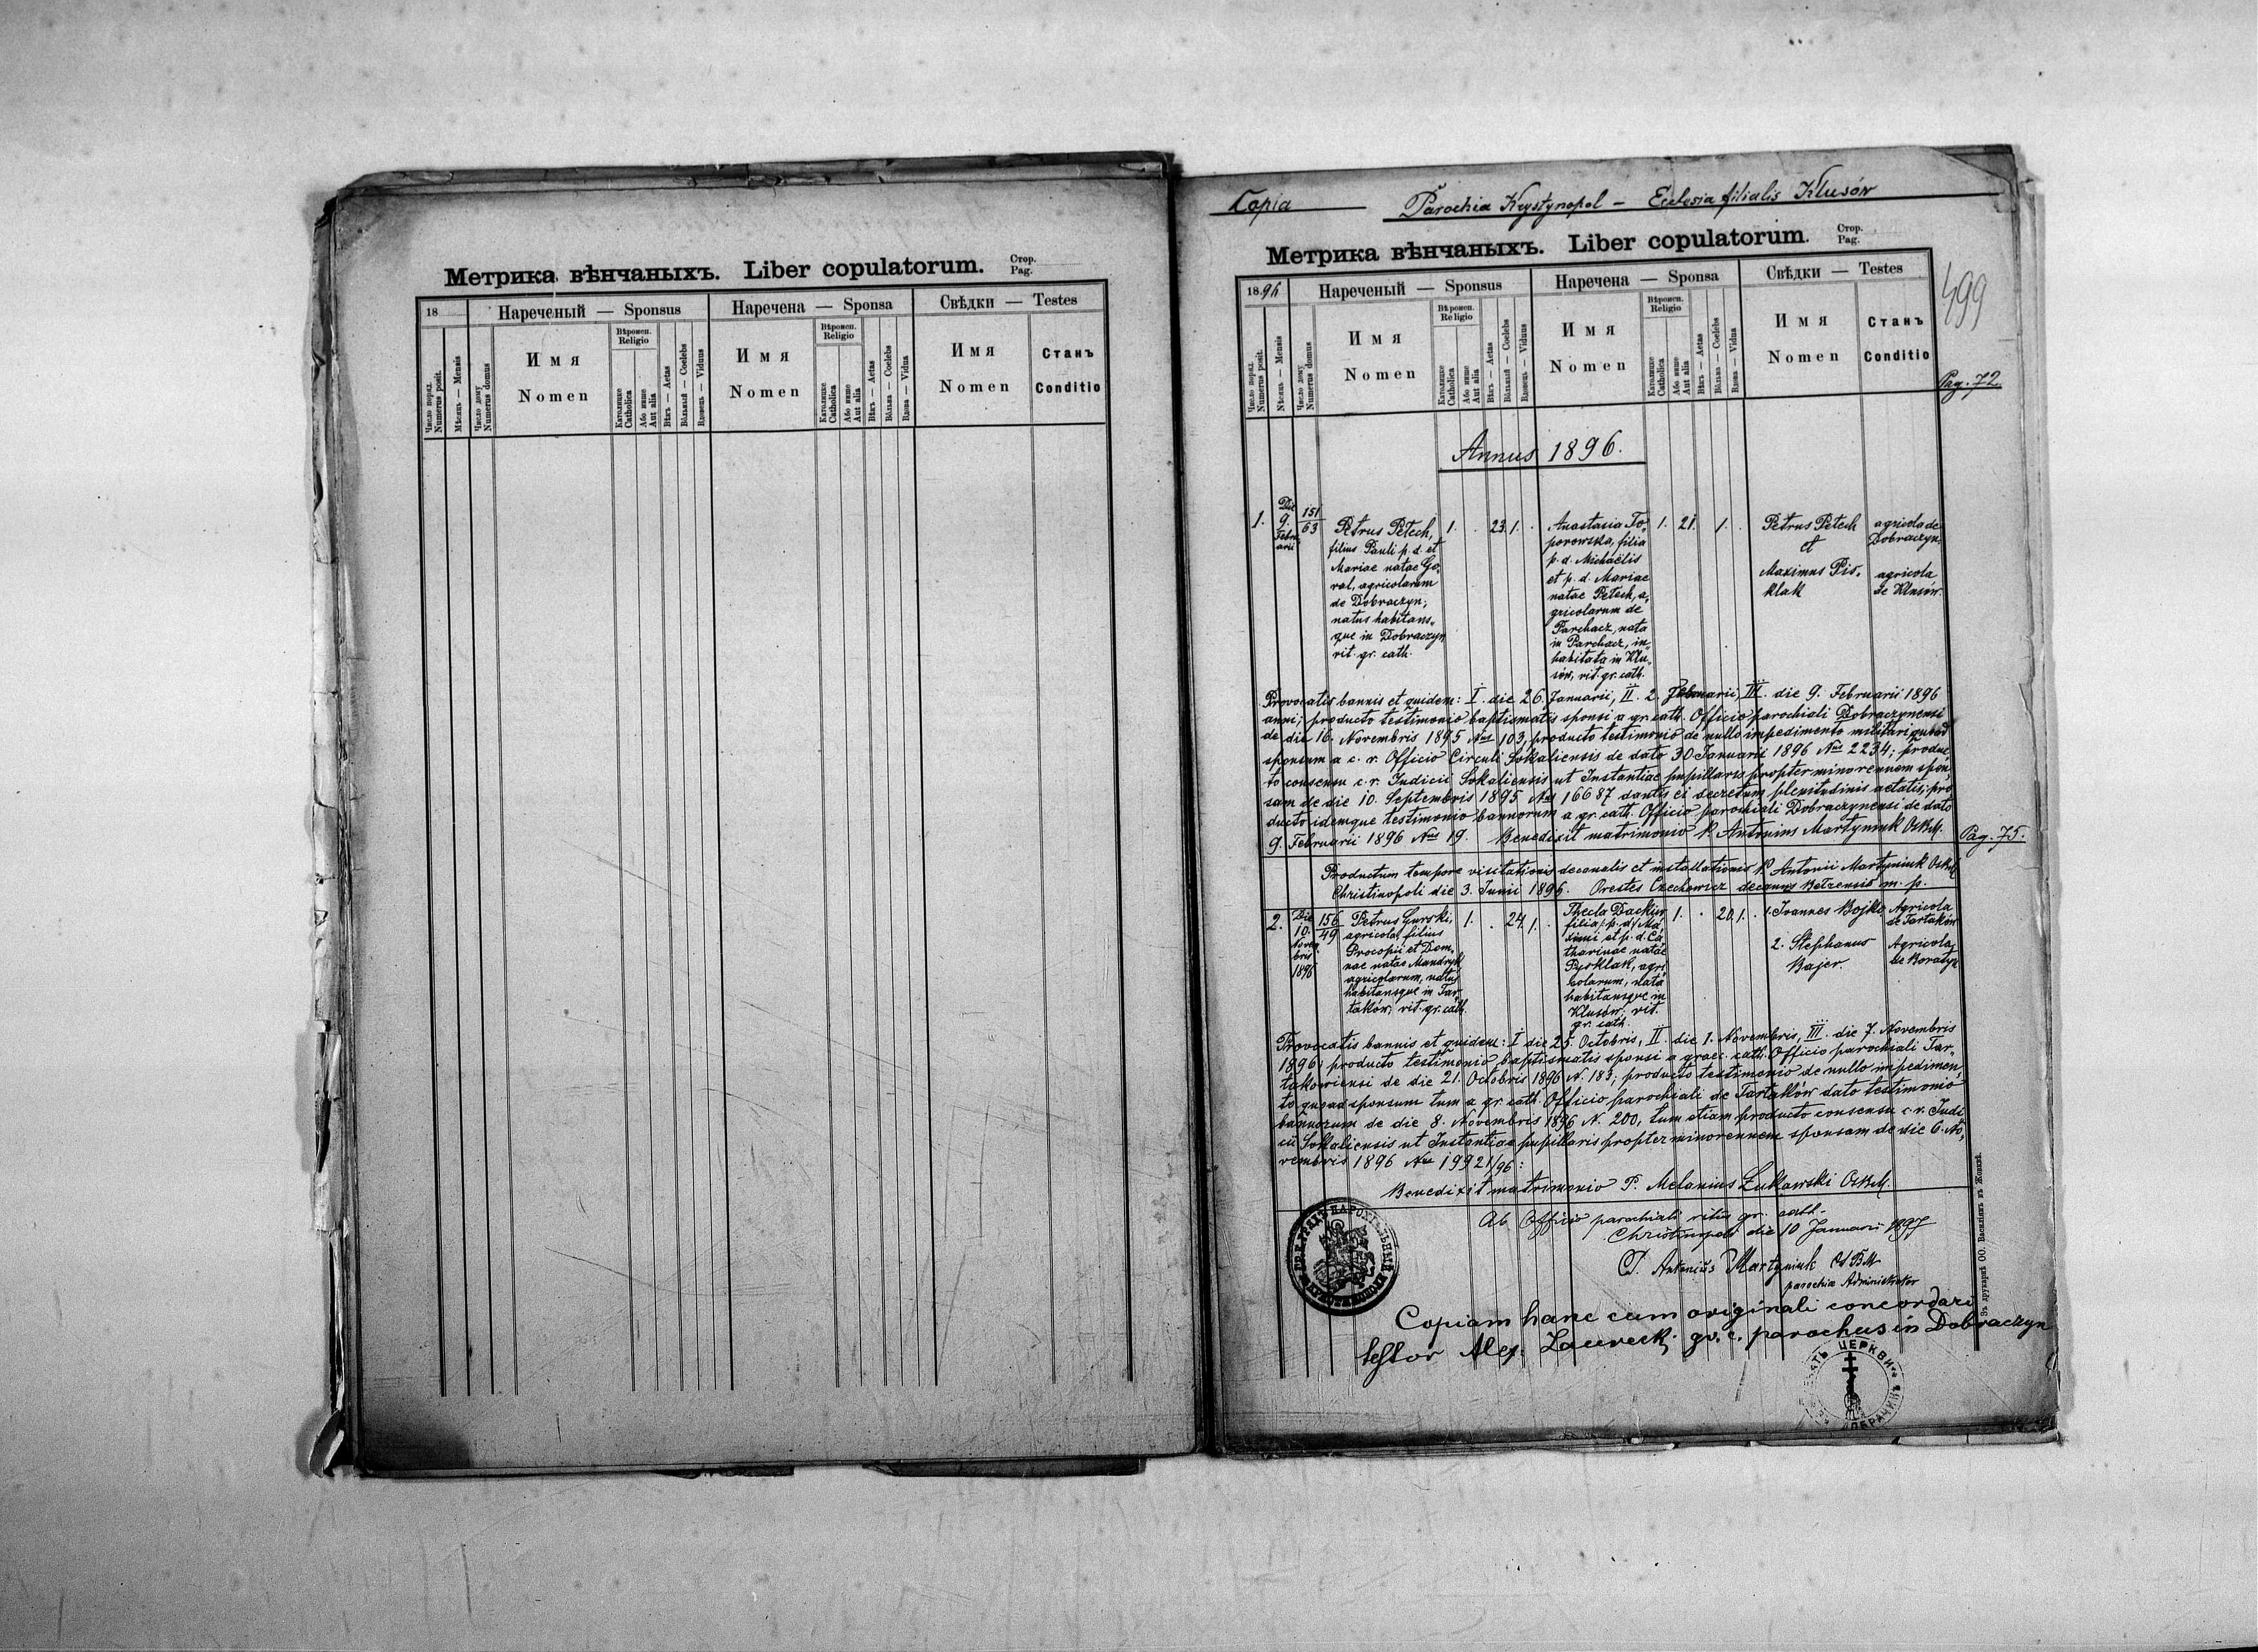 Метрика вѣнчаныхъ. Liber copulatorum. Стор. Pag.
18
Нареченый — Sponsus
Наречена — Sponsa
Свѣдки — Testes
Число поряд. Numerus posit.
Мѣсяць — Mensis
Число дому Numerus domus
Имя
Nomen
Вѣроисп. Religio
Католицке Catholica
Або инше Aut alia
Вѣкъ — Aetas
Вôльный — Coelebs
Вдовець — Viduus
Имя
Nomen
Вѣроисп. Religio
Католицке Catholica
Або инше Aut alia
Вѣкъ — Aetas
Вôльна — Coelebs
Вдова — Vidua
Имя
Nomen
Станъ
Conditio
Copia Parochia Krystynopol — Ecclesia filialis Klusów
Метрика вѣнчаныхъ. Liber copulatorum. Стор. Pag.
499
1896
Нареченый — Sponsus
Наречена — Sponsa
Свѣдки — Testes
Число поряд. Numerus posit.
Мѣсяць — Mensis
Число дому Numerus domus
Имя
Nomen
Вѣроисп. Religio
Католицке Catholica
Або инше Aut alia
Вѣкъ — Aetas
Вôльный — Coelebs
Вдовець — Viduus
Имя
Nomen
Вѣроисп. Religio
Католицке Catholica
Або инше Aut alia
Вѣкъ — Aetas
Вôльна — Coelebs
Вдова — Vidua
Имя
Nomen
Станъ
Conditio
Pag. 72.
Annus 1896.
1.
Die
9.
Febru-
arii
151
63
Petrus Petech,
filius Pauli p. d. et
Mariae natae Go-
ral, agricolarum
de Dobraczyn;
natus habitans-
que in Dobraczyn
rit. gr. cath.
1. . 23. 1. .
Anastasia To-
porowska, filia
p. d. Michaëlis
et p. d. Mariae
natae Petech, a-
gricolarum de
Parchacz, nata
in Parchacz, in-
habitata in Klu-
sów, rit. gr. cath.
1. 21. 1. .
Petrus Petech
et
Maximus Pis-
klak
agricola de
Dobraczyn.
agricola
de Klusów.
Provocatis bannis et quidem: I. die 26. Januarii, II. 2. Februarii, III. die 9. Februarii 1896
anni; producto testimonio baptismatis sponsi a gr. cath. Officio parochiali Dobraczynensi
de die 16. Novembris 1895 Nus 103, producto testimonio de nullo impedimento militari quoad
sponsum a c. r. Officio Circuli Sokaliensis de dato 30 Januarii 1896 Nus 2234; produc-
to consensu c. r. Iudicii Sokaliensis ut Instantiae pupillaris propter minorennem spon-
sam de die 10. Septembris 1895 Nus 16687 dantis ei decretum plenitudinis aetatis; pro
ducto idemque testimonio bannorum a gr. cath. Officio parochiali Dobraczynensi de dato
9. Februarii 1896 Nus 19. Benedixit matrimonio P. Antonius Martyniuk OSBM.
Pag. 75.
Productum tempore visitationis decanalis et installationis P. Antonii Martyniuk OSBM
Christinopoli die 3. Junii 1896. Orestes Czechowicz decanus Belzensis m. p.
2.
Die
10.
Novem-
bris
1896
156
49
Petrus Gurski,
agricola, filius
Procopii et Dom-
nae natae Mandryk
agricolarum, natus
habitansque in Tar-
taków, rit. gr. cath.
1. . 24. 1.
Thecla Dackiw
filia (p. d.) Ma-
ximi et p. d. Ca-
tharinae natae
Pisklak, agri-
colarum, nata
habitansque in
Klusów, rit.
gr. cath.
1. . 20. 1. .
1. Ioannes Bojko
2. Stephanus
Bajer.
Agricola
de Tartaków
Agricola
de Boratyn
Provocatis bannis et quidem: I die 25. Octobris, II. die 1. Novembris, III. die 7. Novembris
1896; producto testimonio baptismatis sponsi a graec. cath. Officio parochiali Tar-
takowiensi de die 21. Octobris 1896 N. 183; producto testimonio de nullo impedimen-
to quoad sponsum tum a gr. cath. Officio parochiali de Tartaków dato testimonio
bannorum de die 8. Novembris 1896 N. 200, tum etiam producto consensu c. r. Judi
cii Sokaliensis ut Instantiae pupillaris propter minorennem sponsam de die 6. No-
vembris 1896 Nus 19921/96:
Benedixit matrimonio P. Melanius Łukawski OSBM.
Ab Officio parochiali ritus gr. cath.
Christinopoli die 10 Januarii 1897
P. Antonius Martyniuk OSBM
parochiae Administrator
Copiam hanc cum originali concordari
testor Alex. Laurecki gr. c. parochus in Dobraczyn
Зъ друкарнѣ ОО. Василіянъ въ Жовквѣ.
ЦЕРКВИ